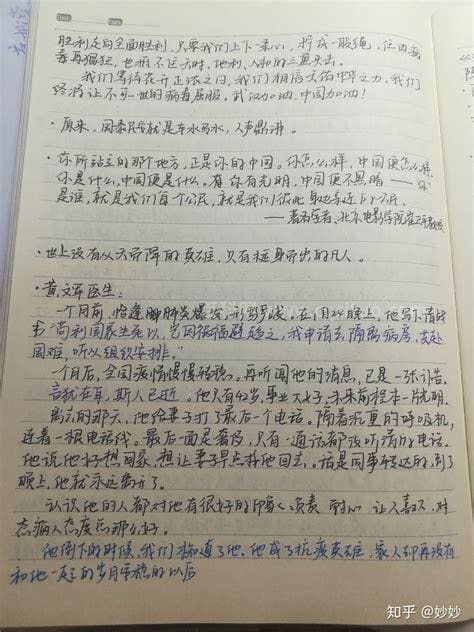 胜利走向全面胜利，只要我们上下一心，拧成一股绳，任由病
毒再猖狂，也挡不住天时、地利、人和的三重夹击。
我们等待春暖花开正浓之日，我们相信大佑中华之力，我们
终将让不可一世的病毒屈服，武汉加油，中国加油！
·原来，国泰民安就是车水马水，人声鼎沸。
·你所站立的那个地方，正是你的中国。你怎么样，中国便怎么样，
你是什么，中国便是什么。有你有光明，中国便不黑暗——你
是谁，就是我们每个公民，就是我们彼此
——著名学者、北京电影学院崔卫平教授
·世上没有从天而降的英雄，只有挺身而出的凡人。
·黄文军医生：
一个月前，恰逢肺炎爆发，形势严峻。在1月24晚上，他写下请战
书"苟利国家生死以，岂因祸福避趋之，我申请去隔离病房，共赴
国难，听从组织安排。"
一个月后，全国疫情慢慢转稳，再听闻他的消息，已是一张讣告。
音犹在耳，斯人已逝。他只有42岁，事业大好，未来前程本一片光明。
离去的那天，他给妻子打了最后一个电话。隔着沉重的呼吸机，
连着一根电话线。最后一面是奢侈，只有一通话都没听清的电话。
他说他好想回家，想让妻子早点接他回去。话是同事转达的，到了
晚上，他就永远离开了。
认识他的人都对他有很好的印象：负责 耐心 让人喜欢，对
病人态度总那么好。
他倒下的时候，我们知道了他，他成了抗疫英雄，家人却再没有
和他一起的岁月安稳的以后
知乎 @妙妙